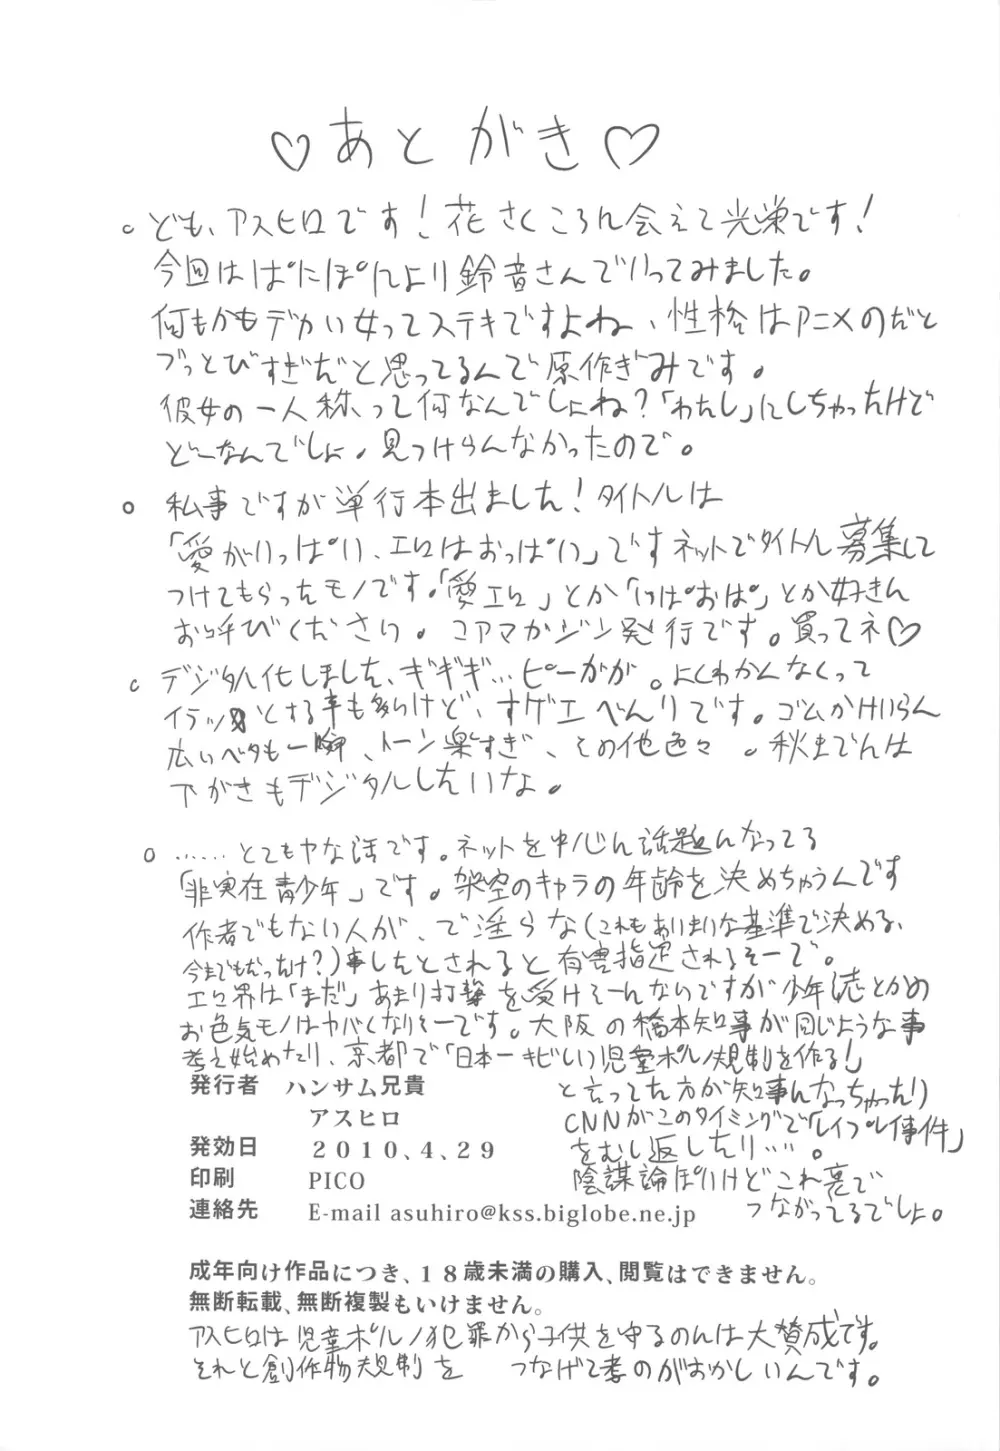 ♡あとがき♡
○ ども、アスヒロです!花さくころに会えて光栄です!
今回はぱにぽにより鈴音さんでいってみました。
何もかもデカい女ってステキですよね、性格はアニメのだと
ブっとびすぎだと思ってるんで原作ぎみです。
彼女の一人称って何なんでしょね?「わたし」にしちゃったけど
どーなんでしょ。見つけらんなかったので。
○ 私事ですが単行本出ました!タイトルは
「愛がいっぱい、エロはおっぱい」ですネットでタイトル募集して
つけてもらったモノです。「愛エロ」とか「いぱおぱ」とか好きに
お呼びください。コアマガジン発行です。買ってネ♡
○ デジタル化しました、ギギギ…ピーガガ。よくわかんなくって
イラッとする事も多いけど、すゲエべんりです。ゴムかけいらん
広いベタも一瞬、トーン楽すぎ、その他色々。秋までには
下がきもデジタルしたいな。
○ ……とてもヤな話です。ネットを中心に話題になってる
「非実在青少年」です。架空のキャラの年齢を決めちゃうんです
作者でもない人が、で淫らな(これもあいまいな基準で決める、
今までもだっけ?)事したとされると有害指定されるそーで。
エロ界は「まだ」あまり打撃を受けそーんないですが少年誌とかの
お色気モノはヤバくなりそーです。大阪の橋本知事が同じような事
考え始めたり、京都で「日本一キビしい児童ポルノ規制を作る!」
と言ってた方が知事になっちゃったり
CNNがこのタイミングで「レイプレイ事件」
をむし返したり…。
陰謀論ぽいけどこれ裏で
つながってるでしょ。
発行者 ハンサム兄貴
アスヒロ
発効日 2010.4.29
印刷 PICO
連絡先 E-mail asuhiro@kss.biglobe.ne.jp
成年向け作品につき、18歳未満の購入、閲覧はできません。
無断転載、無断複製もいけません。
アスヒロは児童ポルノ犯罪から子供を守るのには大賛成です。
それと創作物規制を つなげて考のがおかしいんです。